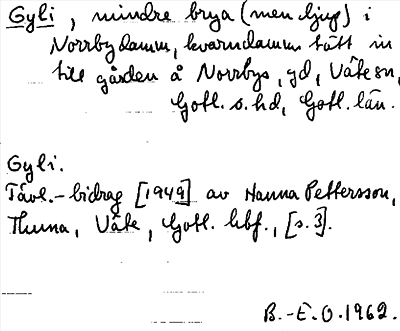 Gyli, mindre brya (men djup) i
Norrby damm, kvarndamm tätt in
till gården å Norrbys, gd, Väte sn,
Gotl. s. hd, Gotl. län.
Gyli.
Tävl.-bidrag [1949] av Hanna Pettersson,
Thuna, Väte, Gotl. hbf., [s. 3].
B.-E.O. 1962.